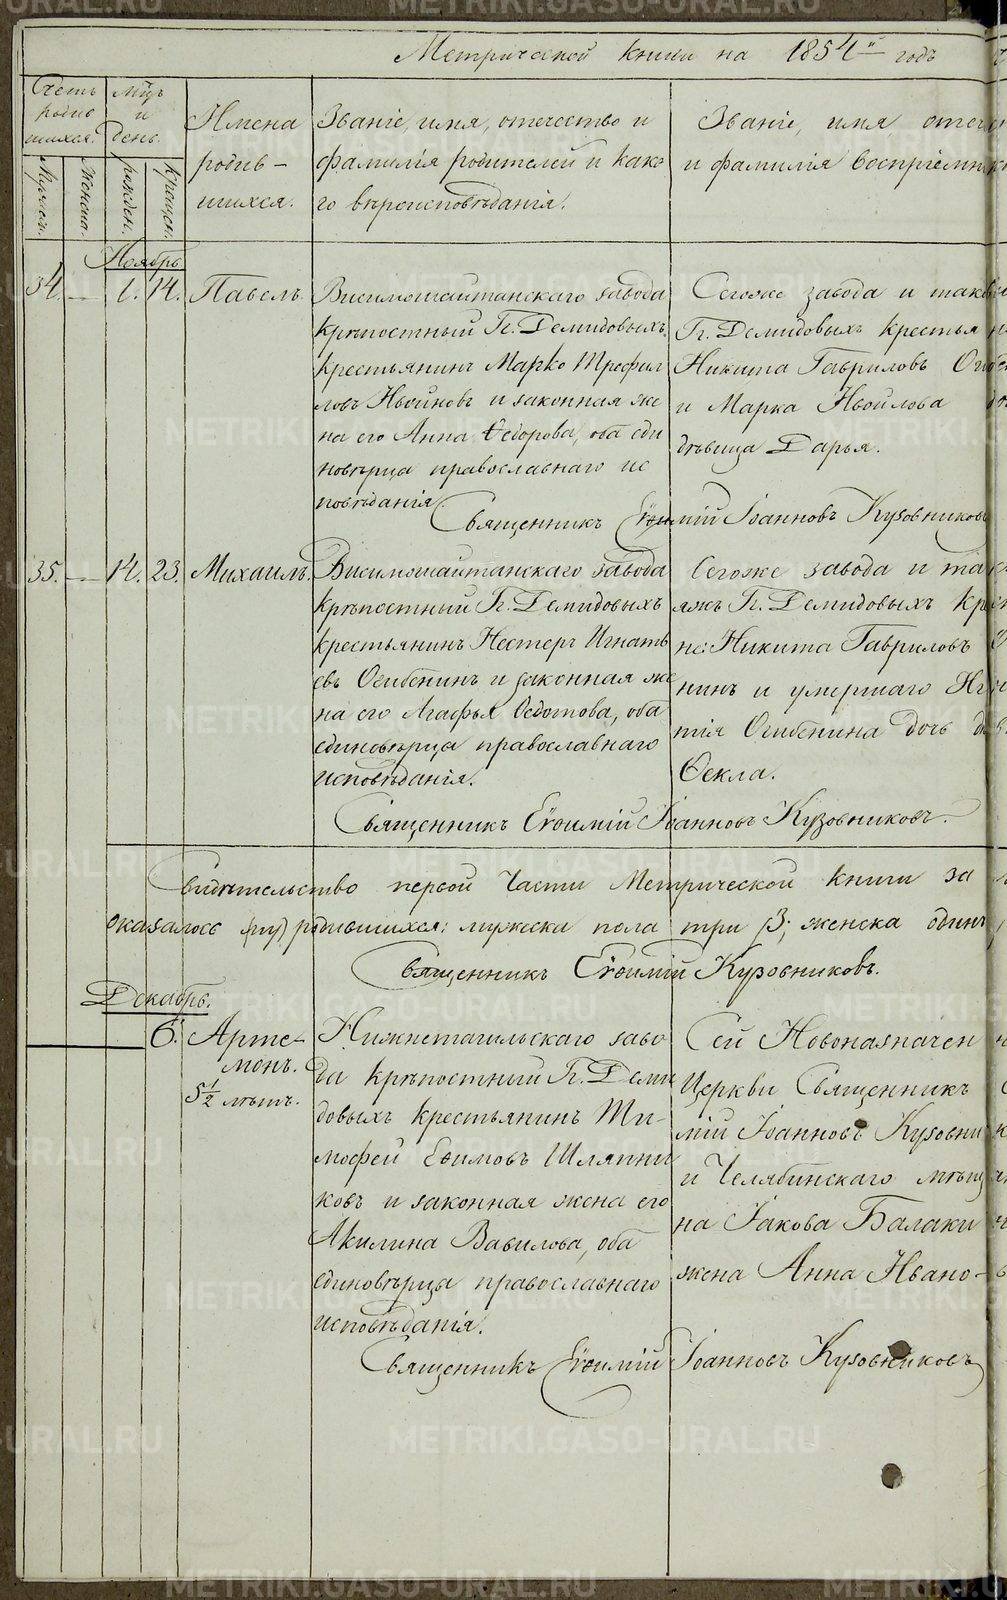 Метрической книги на 1854й годъ
Счетъ родившихся.
Мужеск.
Женска.
Мцъ и день.
рожден.
Крещен.
Имена
родив-
шихся.
Званіе, имя, отечество и
фамилія родителей и како-
го вѣроисповѣданія.
Званіе, имя, отече
и фамилія воспріемни
Ноябрь
34. — 1. 14. Павелъ.
Висимошайтанскаго завода
крѣпостный Гг. Демидовыхъ
крестьянинъ Марко Трофил
ловъ Ивойловъ и законная же
на его Анна Ѳедорова, оба еди
новѣрца православнаго ис
повѣданія.
Сегоже завода и такв
Гг. Демидовыхъ крестья
Никита Гавриловъ Оги
и Марка Ивойлова
дѣвица Дарья.
Священникъ Евѳимій Іоанновъ Кузовниковъ
35. — 14. 23. Михаилъ.
Висимошайтанскаго завода
крѣпостный Гг. Демидовыхъ
крестьянинъ Нестеръ Игнать
евъ Огибенинъ и законная же
на его Агафья Ѳедотова, оба
единовѣрца православнаго
исповѣданія.
Сегоже завода и та
яжъ Гг. Демидовыхъ кре
не: Никита Гавриловъ
нинъ и умершаго Иг
тія Огибенина дочь
Ѳекла.
Священникъ Евѳимій Іоанновъ Кузовниковъ.
Свидѣтельство первой части Метрической книги за
оказалось родившихся: мужеска пола три /3; женска одинъ
Священникъ Евѳимій Кузовниковъ.
Декабрь.
6. Арте-
монъ.
5 1/2 лѣтъ.
Нижнетагильскаго заво
да крѣпостный Гг. Деми
довыхъ крестьянинъ Ти-
мофей Ефимовъ Шляпни
ковъ и законная жена его
Акилина Вавилова, оба
единовѣрца православнаго
исповѣданія.
Сей Новоназначен
Церкви Священникъ
мій Іоанновъ Кузовни
и Челябинскаго мѣщ
на Іакова Балаки
жена Анна Ивано-
Священникъ Евѳимій Іоанновъ Кузовниковъ
METRIKI.GASO-URAL.RU